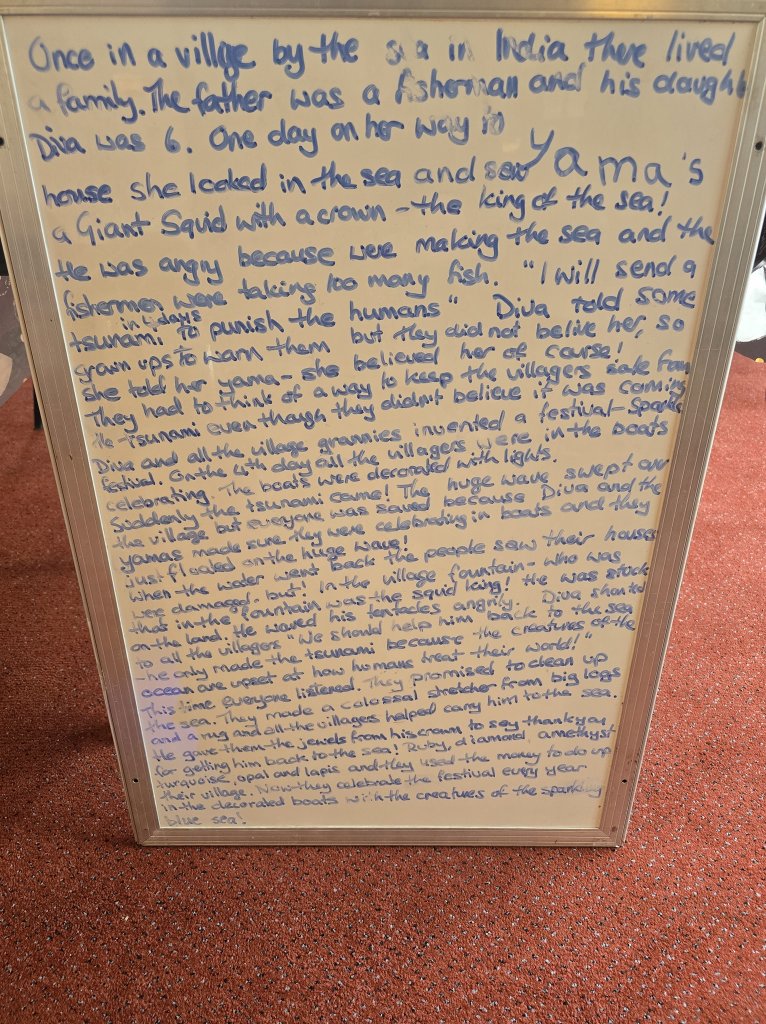 Once in a villge by the sea in India there lived
a family. The father was a fisherman and his daught
Diva was 6. One day on her way to
Yama's
house she looked in the sea and saw
a Giant Squid with a crown - the king of the sea!
He was angry because were making the sea and the
fishermen were taking too many fish. "I will send a
in 4 days
tsunami to punish the humans" Diva told some
grown ups to warn them but they did not belive her, so
she told her yama - she believed her of carse!
They had to think of a way to keep the villagers safe from
the tsunami even though they didnt believe it was coming
Diva and all the village grannies invented a festival - Sparkle
festival. On the 4th day all the villagers were in the boats
celebrating. The boats were decorated with lights.
Suddenly the tsunami came! The huge wave swept over
the village but everyone was saved because Diva and the
yamas made sure they were celebrating in boats and they
just floated on the huge wave!
When the water went back the people saw their houses
were damaged. but! In the village fountain - who was
that in the fountain was the squid king! He was stuck
on the land. He waved his tentacles angrily. Diva shouted
to all the villagers "We should help him back to the sea
- he only made the tsunami because the creatures of the
ocean are upset at how humans treat their world!"
This time everyone listened. They promised to clean up
the sea. They made a colossal stretcher from big logs
and a rug and all the villagers helped carry him to the sea.
He gave them the jewels from his crown to say thankyou
for getting him back to the sea! Ruby, diamond amethyst
turquoise, opal and lapis and they used the money to do up
their village. Now they celebrate the festival every year
in the decorated boats with the creatures of the sparkling
blue sea!